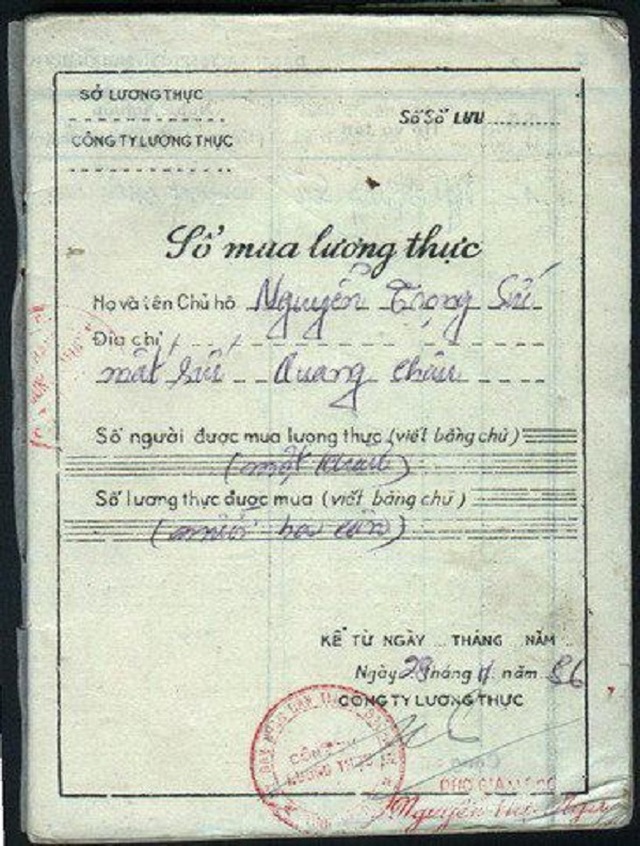 SỞ LƯƠNG THỰC
Số Sổ LƯU
CÔNG TY LƯƠNG THỰC
Sổ mua lương thực
Họ và tên Chủ hộ Nguyễn Trọng Sử
Địa chỉ
Quang Châu
Số người được mua lương thực (viết bằng chữ)
(một khẩu)
Số lương thực được mua (viết bằng chữ)
(mười ba cân)
KỂ TỪ NGÀY ... THÁNG ... NĂM ...
Ngày 28 tháng 11 năm 86
CÔNG TY LƯƠNG THỰC
CÔNG TY
LƯƠNG THỰC
PHÓ GIÁM ĐỐC
Nguyễn